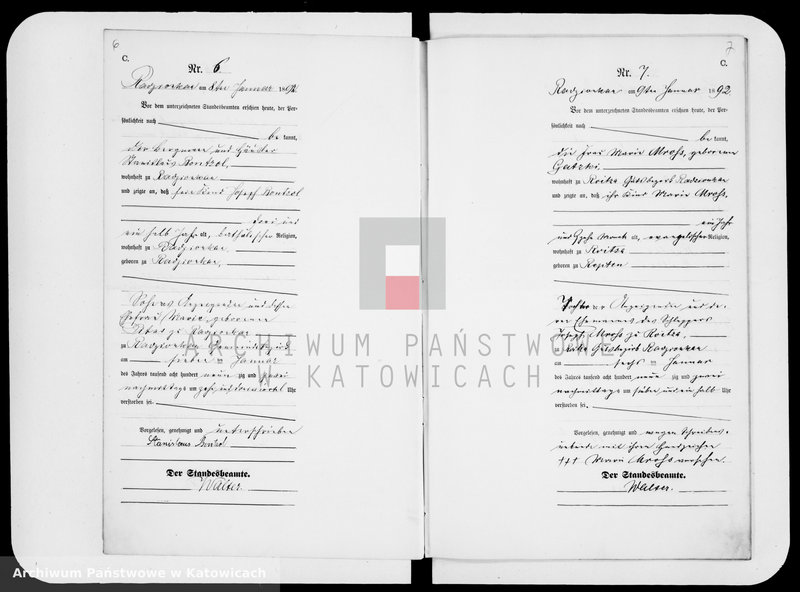 6
C.
Nr. 6.
Radzionkau am 8ten Januar 1892
Vor dem unterzeichneten Standesbeamten erschien heute, der Per-
sönlichkeit nach
be kannt,
der Bergmann und Häusler
Stanislaus Bontzol,
wohnhaft zu Radzionkau
und zeigte an, daß sein Kind Joseph Bontzol
drei und
ein halb Jahr alt, katholischer Religion,
wohnhaft zu Radzionkau
geboren zu Radzionkau,
Sohn des Anzeigenden und dessen
Ehefrau Marie, geborenen
zu Radzionkau
zu Radzionkau
am sieben ten Januar
des Jahres tausend acht hundert neun zig und zwei
nachmittags um Uhr
verstorben sei.
Vorgelesen, genehmigt und unterschrieben
Stanislaus Bontzol
Der Standesbeamte.
Walter.
7
C.
Nr. 7.
Radzionkau am 9ten Januar 1892
Vor dem unterzeichneten Standesbeamten erschien heute, der Per-
sönlichkeit nach
be kannt,
die Frau Marie Mrohs, geborene
wohnhaft zu Gutsbezirk Radzionkau
und zeigte an, daß ihr Kind Marie Mrohs,
ein Jahr
und sechs Monat alt, evangelischer Religion,
wohnhaft zu
geboren zu Repten
Tochter der Anzeigenden und de-
ren Ehemannes, des Schleppers
Joseph Mrohs zu
zu Gutsbezirk Radzionkau
am sechs ten Januar
des Jahres tausend acht hundert neun zig und zwei
nachmittags um sieben und ein halb Uhr
verstorben sei.
Vorgelesen, genehmigt und wegen Schreibens-
unkunde mit ihrem Handzeichen
††† Marie Mrohs versehen.
Der Standesbeamte.
Walter.
ARCHIWUM PAŃSTWOWE
W KATOWICACH
Archiwum Państwowe w Katowicach